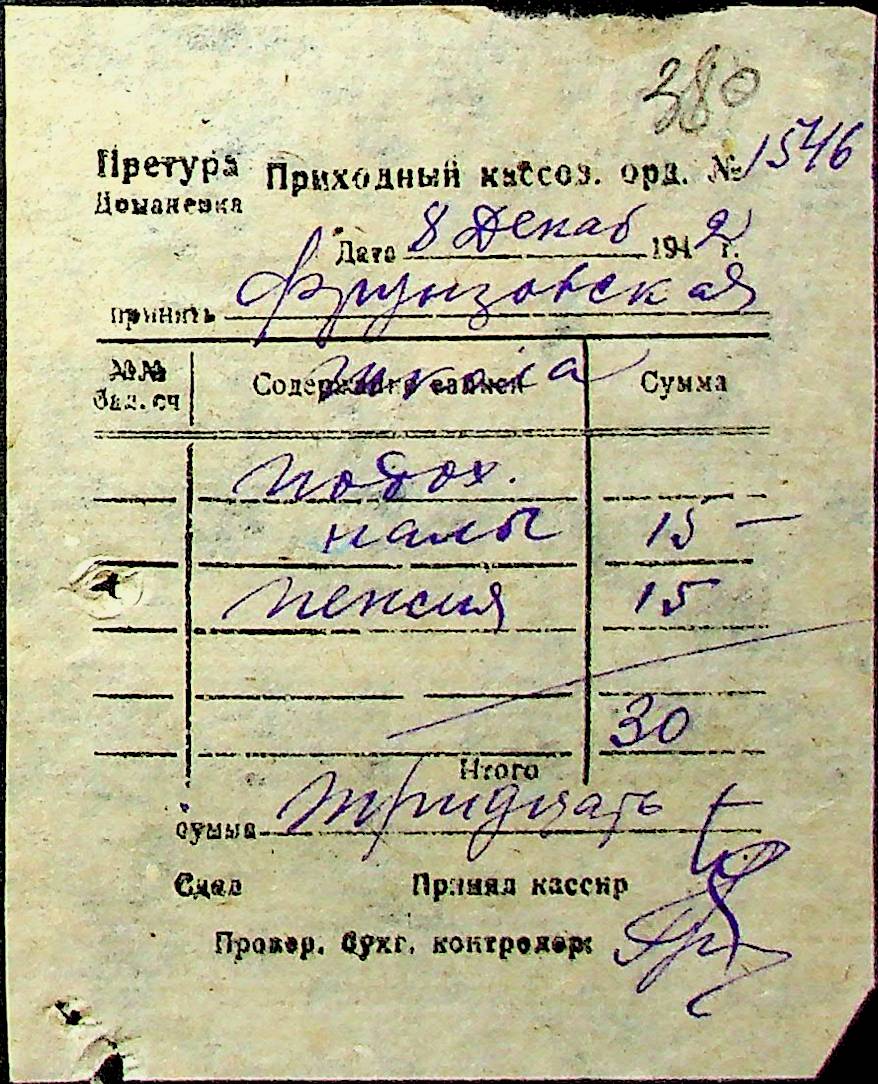 380
Претура Приходный кассов. орд. № 1546
Доманевка
Дата 8 Декаб 1942 г.
принять Фрунзовская
школа
№№ бал. сч Содержание записей Сумма
подох.
налог 15 —
пенсия 15
30
Итого
сумма тридцать
Сдал Принял кассир
Провер. бухг. контролер: